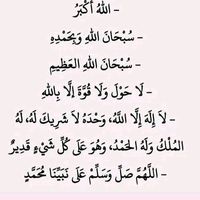 - اللهُ أَكْبَرُ
- سُبْحَانَ اللهِ وَبِحَمْدِهِ
- سُبْحَانَ اللهِ العَظِيمِ
- لَا حَوْلَ وَلَا قُوَّةَ إِلَّا بِاللهِ
- لاَ إِلَهَ إِلَّا اللهُ، وَحْدَهُ لاَ شَرِيكَ لَهُ، لَهُ
المُلْكُ وَلَهُ الحَمْدُ، وَهُوَ عَلَى كُلِّ شَيْءٍ قَدِيرٌ
- اللَّهُمَّ صَلِّ وَسَلِّمْ عَلَى نَبِيِّنَا مُحَمَّدٍ